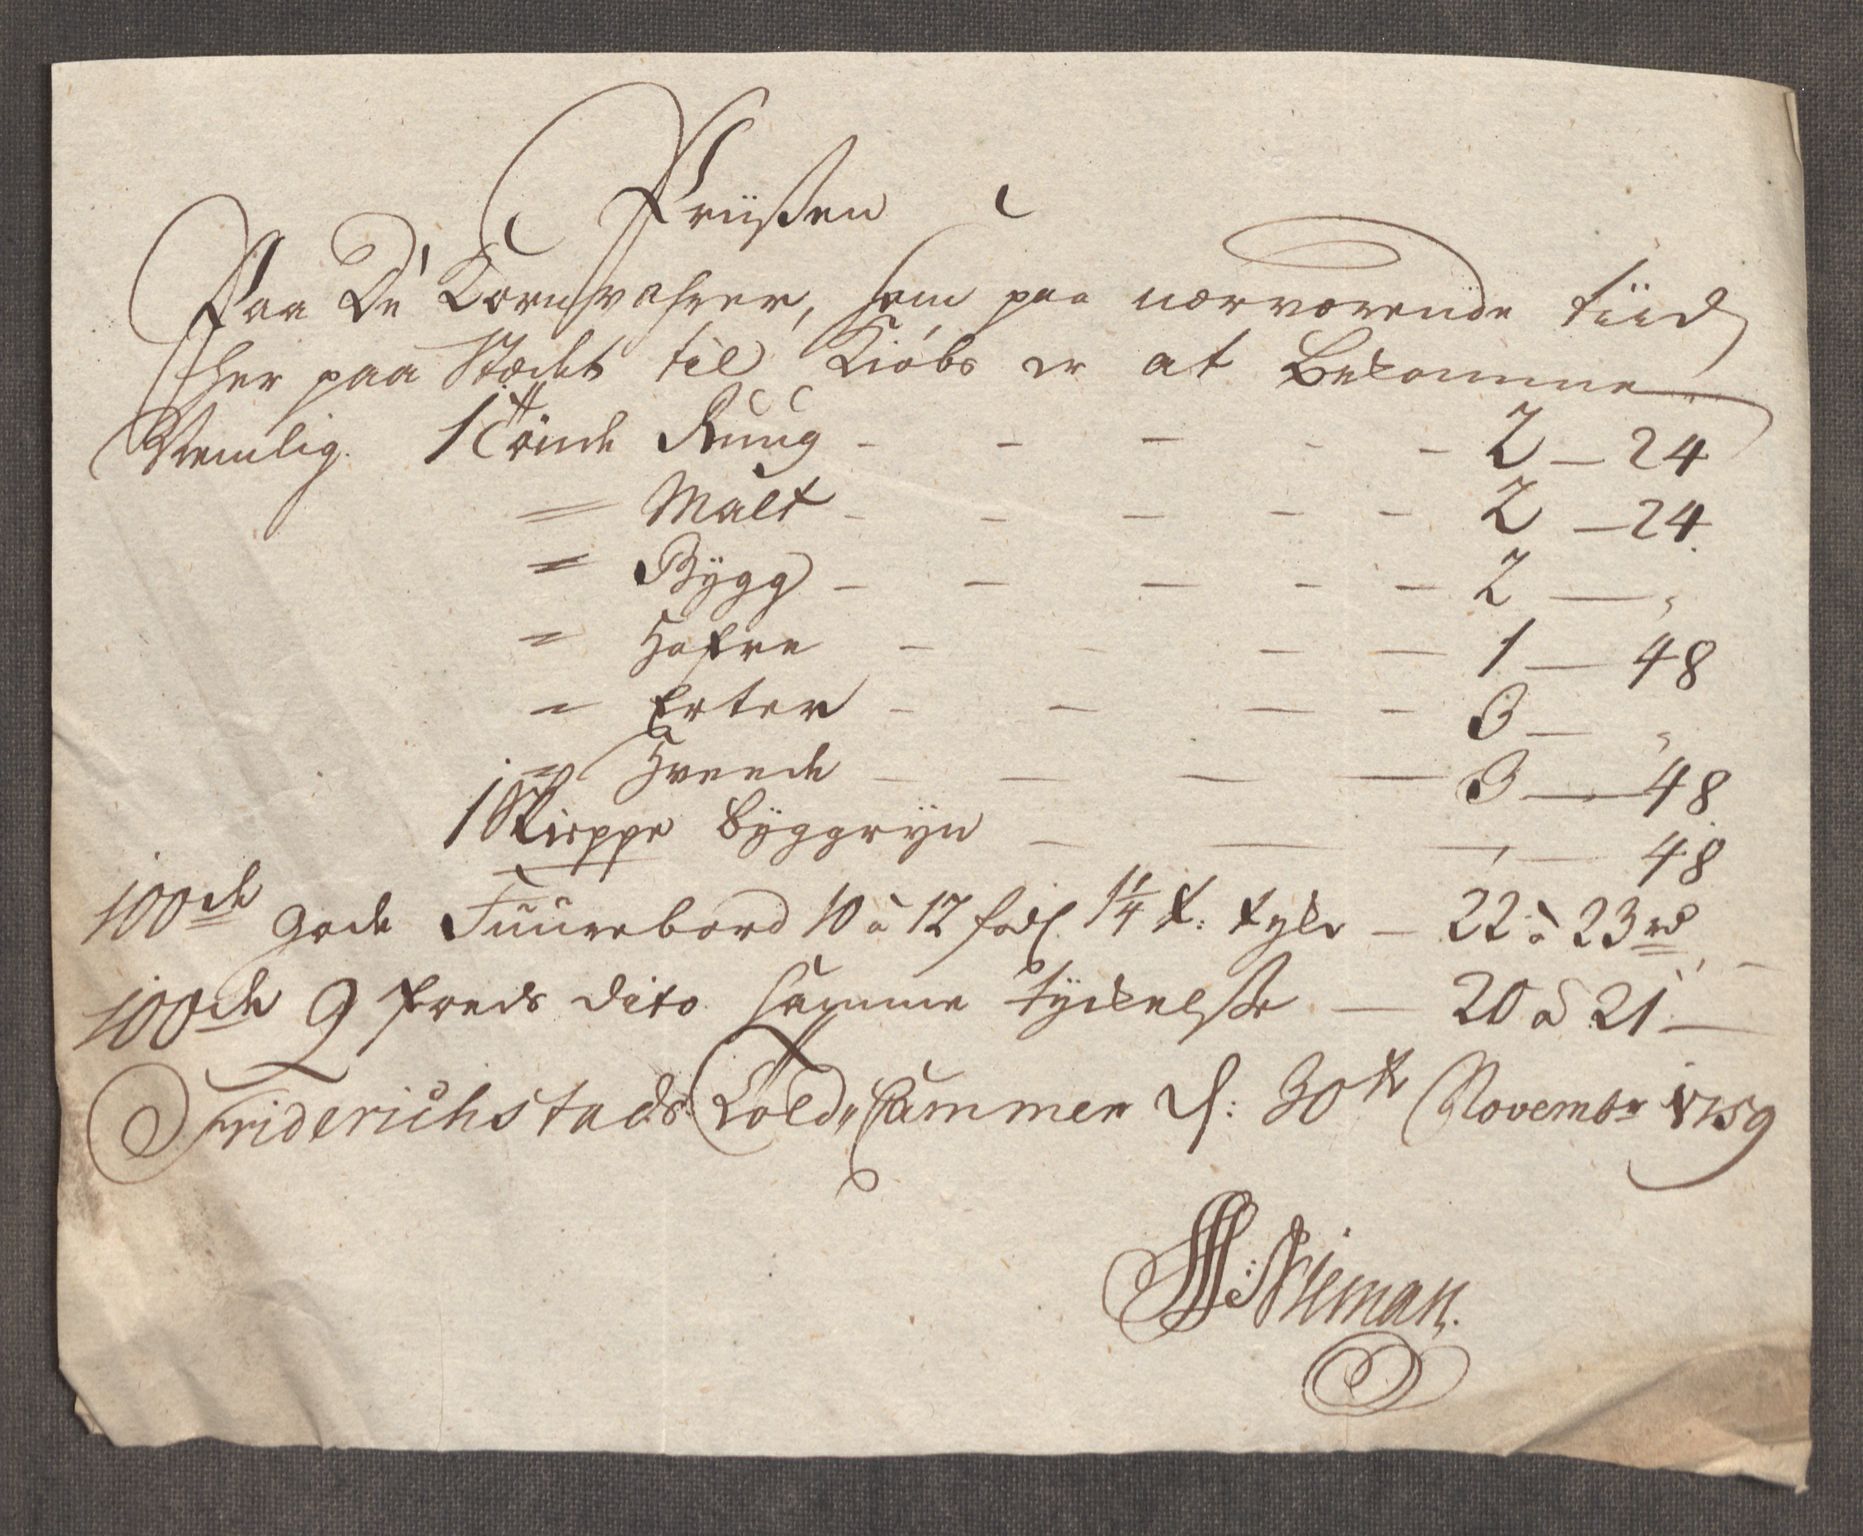 Priißen
Paa De Kornvahrer, som paa nærværende tiid
her paa Stædet til Kiøbs er at Bekomme
Nemlig. 1 Tönde Ruug - - - - - 2 - 24
= Malt - - - - - 2 - 24.
= Bÿgg - - - - - 2 - "
= Hafre - - - - 1 - 48
= Erter - - - - 3 - "
= Hveede - - - - 3 - 48
1 Skieppe bÿggrÿn - - - - 48
100de gode Fuurebord 10 a 12 fod 1¼ t: tyke - 22 à 23 rd
100de 9 foeds dito samme tÿckelsse - 20 a 21 -
Friderichstads Told Cammer d: 30te Novembr 1759
Nieman.